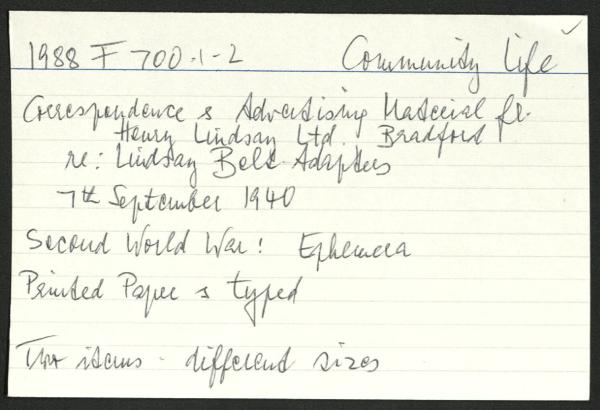 1988 F 700.1-2 Community Life
Correspondence & Advertising Material fr.
Henry Lindsay Ltd. Bradford
re: Lindsay Belt Adapters
7th September 1940
Second World War: Ephemera
Printed Paper & typed
Two items - different sizes